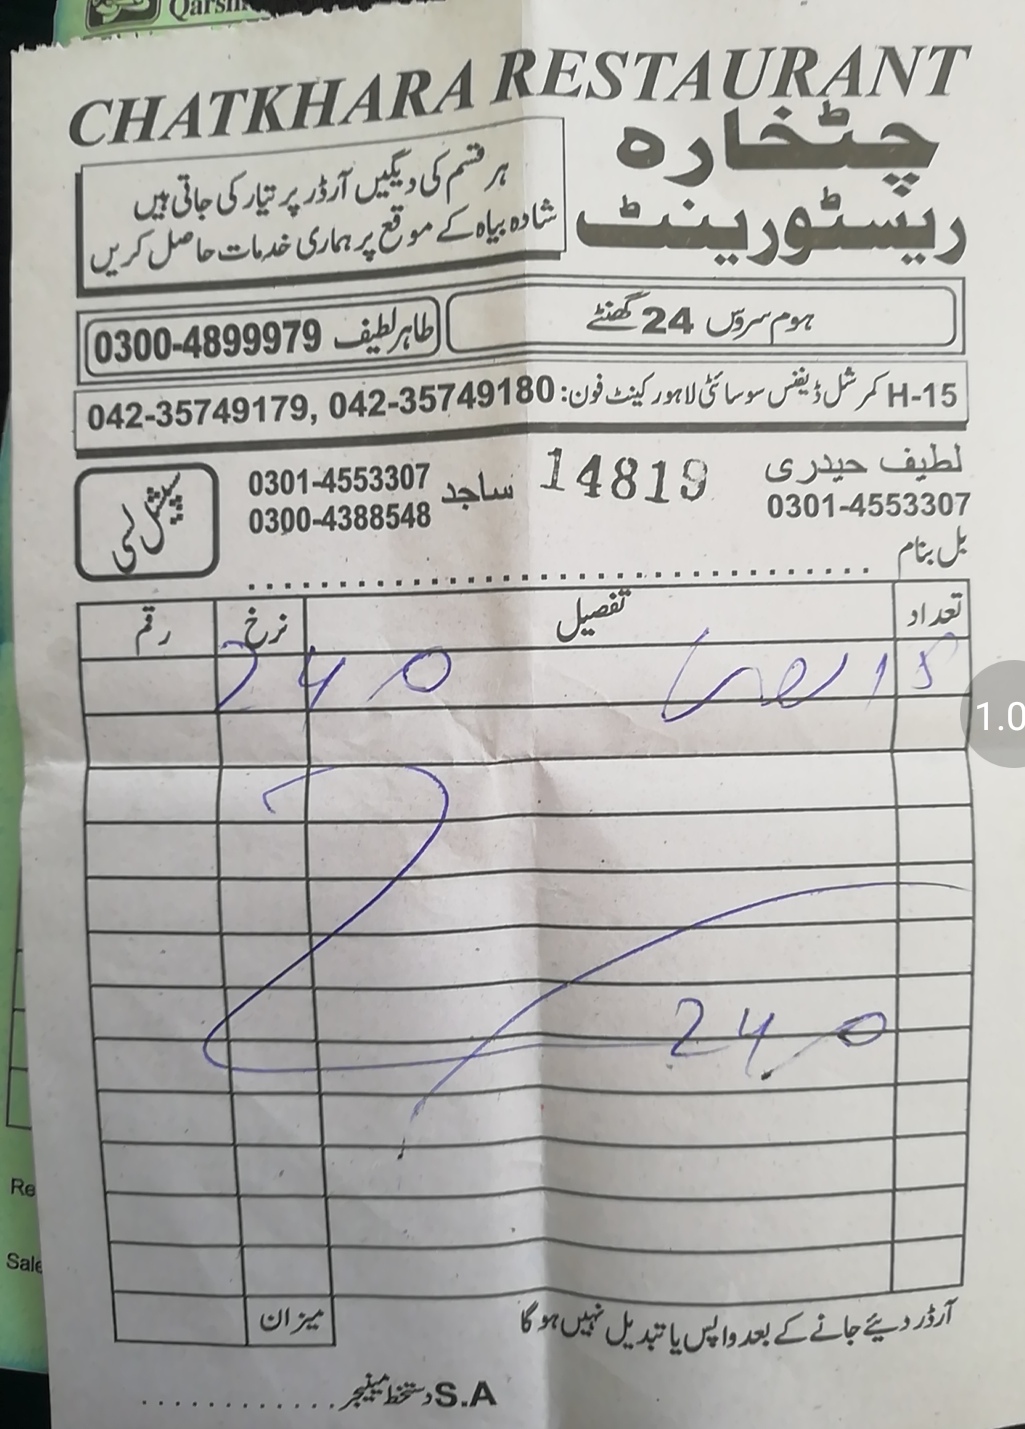 Qarshi
CHATKHARA RESTAURANT
چٹخارہ
ریسٹورینٹ
ہر قسم کی دیگیں آرڈر پر تیار کی جاتی ہیں
شادہ بیاہ کے موقع پر ہماری خدمات حاصل کریں
ہوم سروس 24 گھنٹے
طاہر لطیف 0300-4899979
H-15 کمرشل ڈیفنس سوسائٹی لاہور کینٹ فون: 042-35749180 ,042-35749179
لطیف حیدری
0301-4553307
14819
ساجد 0301-4553307
0300-4388548
سپیشل لسی
بل بنام
تعداد تفصیل نرخ رقم
240
240
میزان
آرڈر دیئے جانے کے بعد واپس یا تبدیل نہیں ہو گا
S.A دستخط مینیجر
Re
Sale
1.0